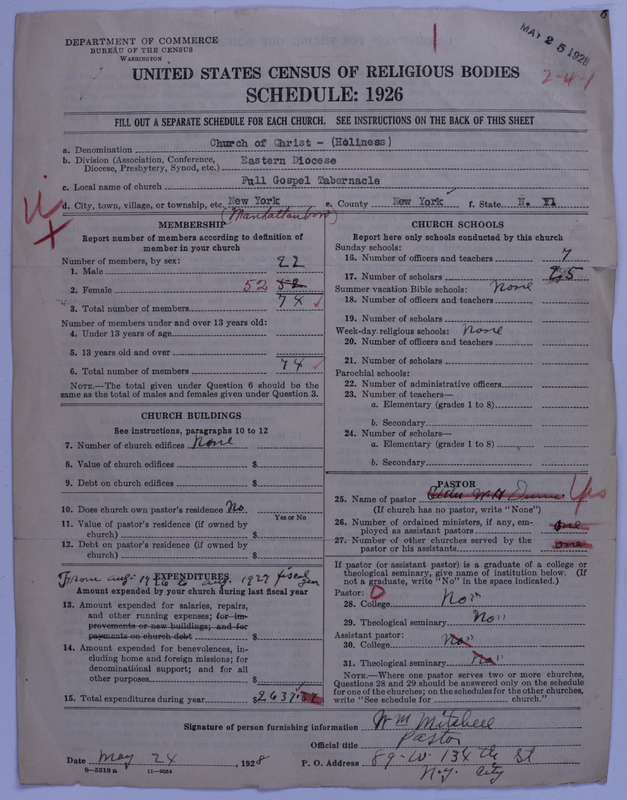 6
MAY 25 1928
DEPARTMENT OF COMMERCE
BUREAU OF THE CENSUS
WASHINGTON
2-4-1
UNITED STATES CENSUS OF RELIGIOUS BODIES
SCHEDULE: 1926
FILL OUT A SEPARATE SCHEDULE FOR EACH CHURCH. SEE INSTRUCTIONS ON THE BACK OF THIS SHEET
a. Denomination Church of Christ - (Holiness)
b. Division (Association, Conference, Diocese, Presbytery, Synod, etc.) Eastern Diocese
c. Local name of church Full Gospel Tabernacle
d. City, town, village, or township, etc. New York e. County New York f. State N. Y.
(Manhattan boro)
MEMBERSHIP
Report number of members according to definition of
member in your church
Number of members, by sex:
1. Male 22
2. Female 52 52
3. Total number of members 74
Number of members under and over 13 years old:
4. Under 13 years of age
5. 13 years old and over
6. Total number of members 74
NOTE.—The total given under Question 6 should be the
same as the total of males and females given under Question 3.
CHURCH BUILDINGS
See instructions, paragraphs 10 to 12
7. Number of church edifices None
8. Value of church edifices $
9. Debt on church edifices $
10. Does church own pastor's residence No
Yes or No
11. Value of pastor's residence (if owned by
church) $
12. Debt on pastor's residence (if owned by
church) $
EXPENDITURES
From Aug. 1926 to Aug. 1927 fiscal year
Amount expended by your church during last fiscal year
13. Amount expended for salaries, repairs,
and other running expenses; for im-
provements or new buildings; and for
payments on church debt $
14. Amount expended for benevolences, in-
cluding home and foreign missions; for
denominational support; and for all
other purposes $
15. Total expenditures during year $2637.37
CHURCH SCHOOLS
Report here only schools conducted by this church
Sunday schools:
16. Number of officers and teachers 7
17. Number of scholars 25
Summer vacation Bible schools: None
18. Number of officers and teachers
19. Number of scholars
Week-day religious schools: None
20. Number of officers and teachers
21. Number of scholars
Parochial schools:
22. Number of administrative officers
23. Number of teachers—
a. Elementary (grades 1 to 8)
b. Secondary
24. Number of scholars—
a. Elementary (grades 1 to 8)
b. Secondary
PASTOR
25. Name of pastor Elder W. H. Yes
(If church has no pastor, write "None")
26. Number of ordained ministers, if any, em-
ployed as assistant pastors one
27. Number of other churches served by the
pastor or his assistants one
If pastor (or assistant pastor) is a graduate of a college or
theological seminary, give name of institution below. (If
not a graduate, write "No" in the space indicated.)
Pastor: 0
28. College "No"
29. Theological seminary "No"
Assistant pastor:
30. College "No"
31. Theological seminary "No"
NOTE.—Where one pastor serves two or more churches,
Questions 28 and 29 should be answered only on the schedule
for one of the churches; on the schedules for the other churches,
write "See schedule for church."
Signature of person furnishing information Wm Mitchell
Official title Pastor
Date May 24, 1928 P. O. Address 89-W. 134 th St
N.Y. City
8-5518a 11-9054